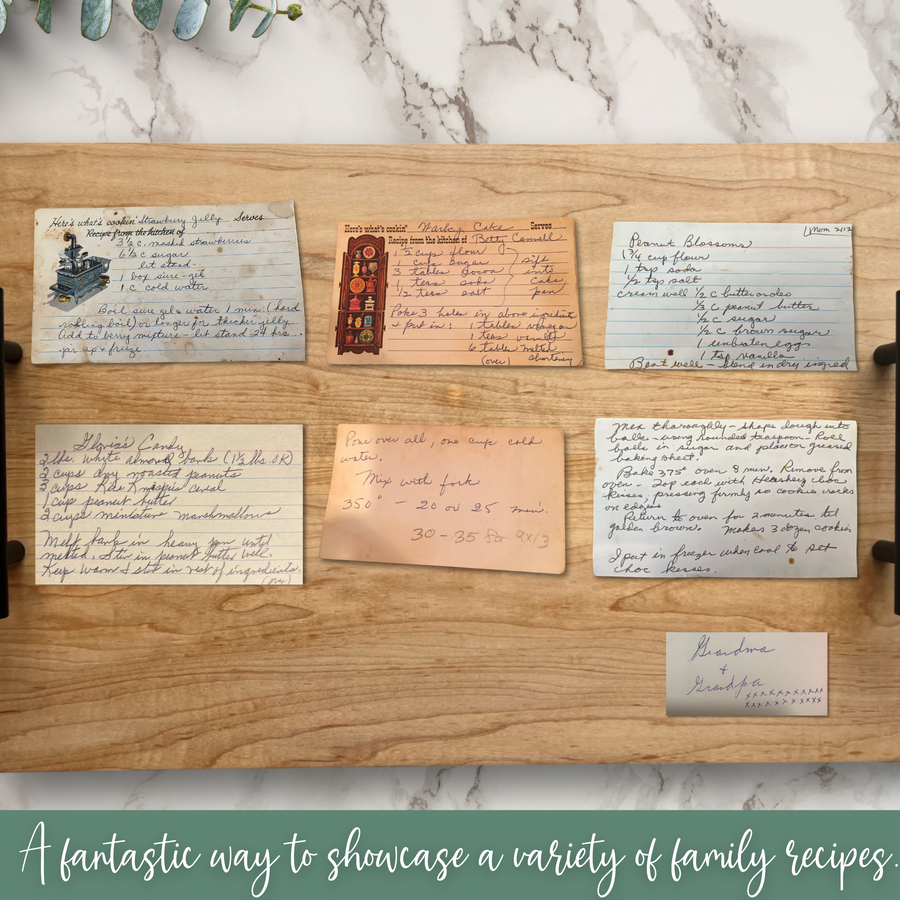 Here's what's cookin' Strawbury Jelly Serves
Recipe from the kitchen of
3 1/2 c. mashed strawberries
6 1/2 c sugar
let stand
1 box sure-gel
1 c. cold water
Boil sure gel & water 1 min. (hard
rolling boil) or longer for thicker jelly.
Add to berry mixture - let stand 24 hrs.
jar up & freize.
Here's what's cookin' Wacky Cake Serves
Recipe from the kitchen of Betty
1 1/2 cups flour
1 cup sugar
3 tables cocoa
1 teas soda
1/2 teas salt
sift
into
cake
pan
Poke 3 holes in above ingredients
+ put in: 1 tables vinegar
1 teas vanilla
6 tables melted
(over) shortening
Mom
Peanut Blossoms
1 3/4 cup flour
1 tsp soda
1/2 tsp salt
cream well 1/2 c butter or oleo
1/3 c peanut butter
1/2 c sugar
1/2 c brown sugar
1 unbeaten eggs
1 tsp vanilla
Beat well - blend in dry ingred
Gloria's Candy
2 lbs white almond bark (1 1/2 lbs OK)
2 cups dry roasted peanuts
3 cups Rice Krispies cereal
1 cup peanut butter
2 cups miniature marshmallows
Melt bark in heavy pan until
melted. Stir in peanut butter well.
Keep warm & stir in rest of ingredients.
(over)
Pour over all, one cup cold
water.
Mix with fork
350° - 20 or 25 min.
30 - 35 for 9x13
Mix thoroughly - shape dough into
balls - using rounded teaspoon - Roll
balls in sugar and place on greased
baking sheet.
Bake 375° oven 8 min. Remove from
oven - Top each with Hershey choc
kisses, pressing firmly so cookie cracks
on edges
Return to oven for 2 minutes til
golden brown. makes 3 dozen cookies
I put in freezer when cool to set
choc kisses.
Grandma
+
Grandpa
xxxxxxxxxxx
xxxxxxxxxxx
A fantastic way to showcase a variety of family recipes.